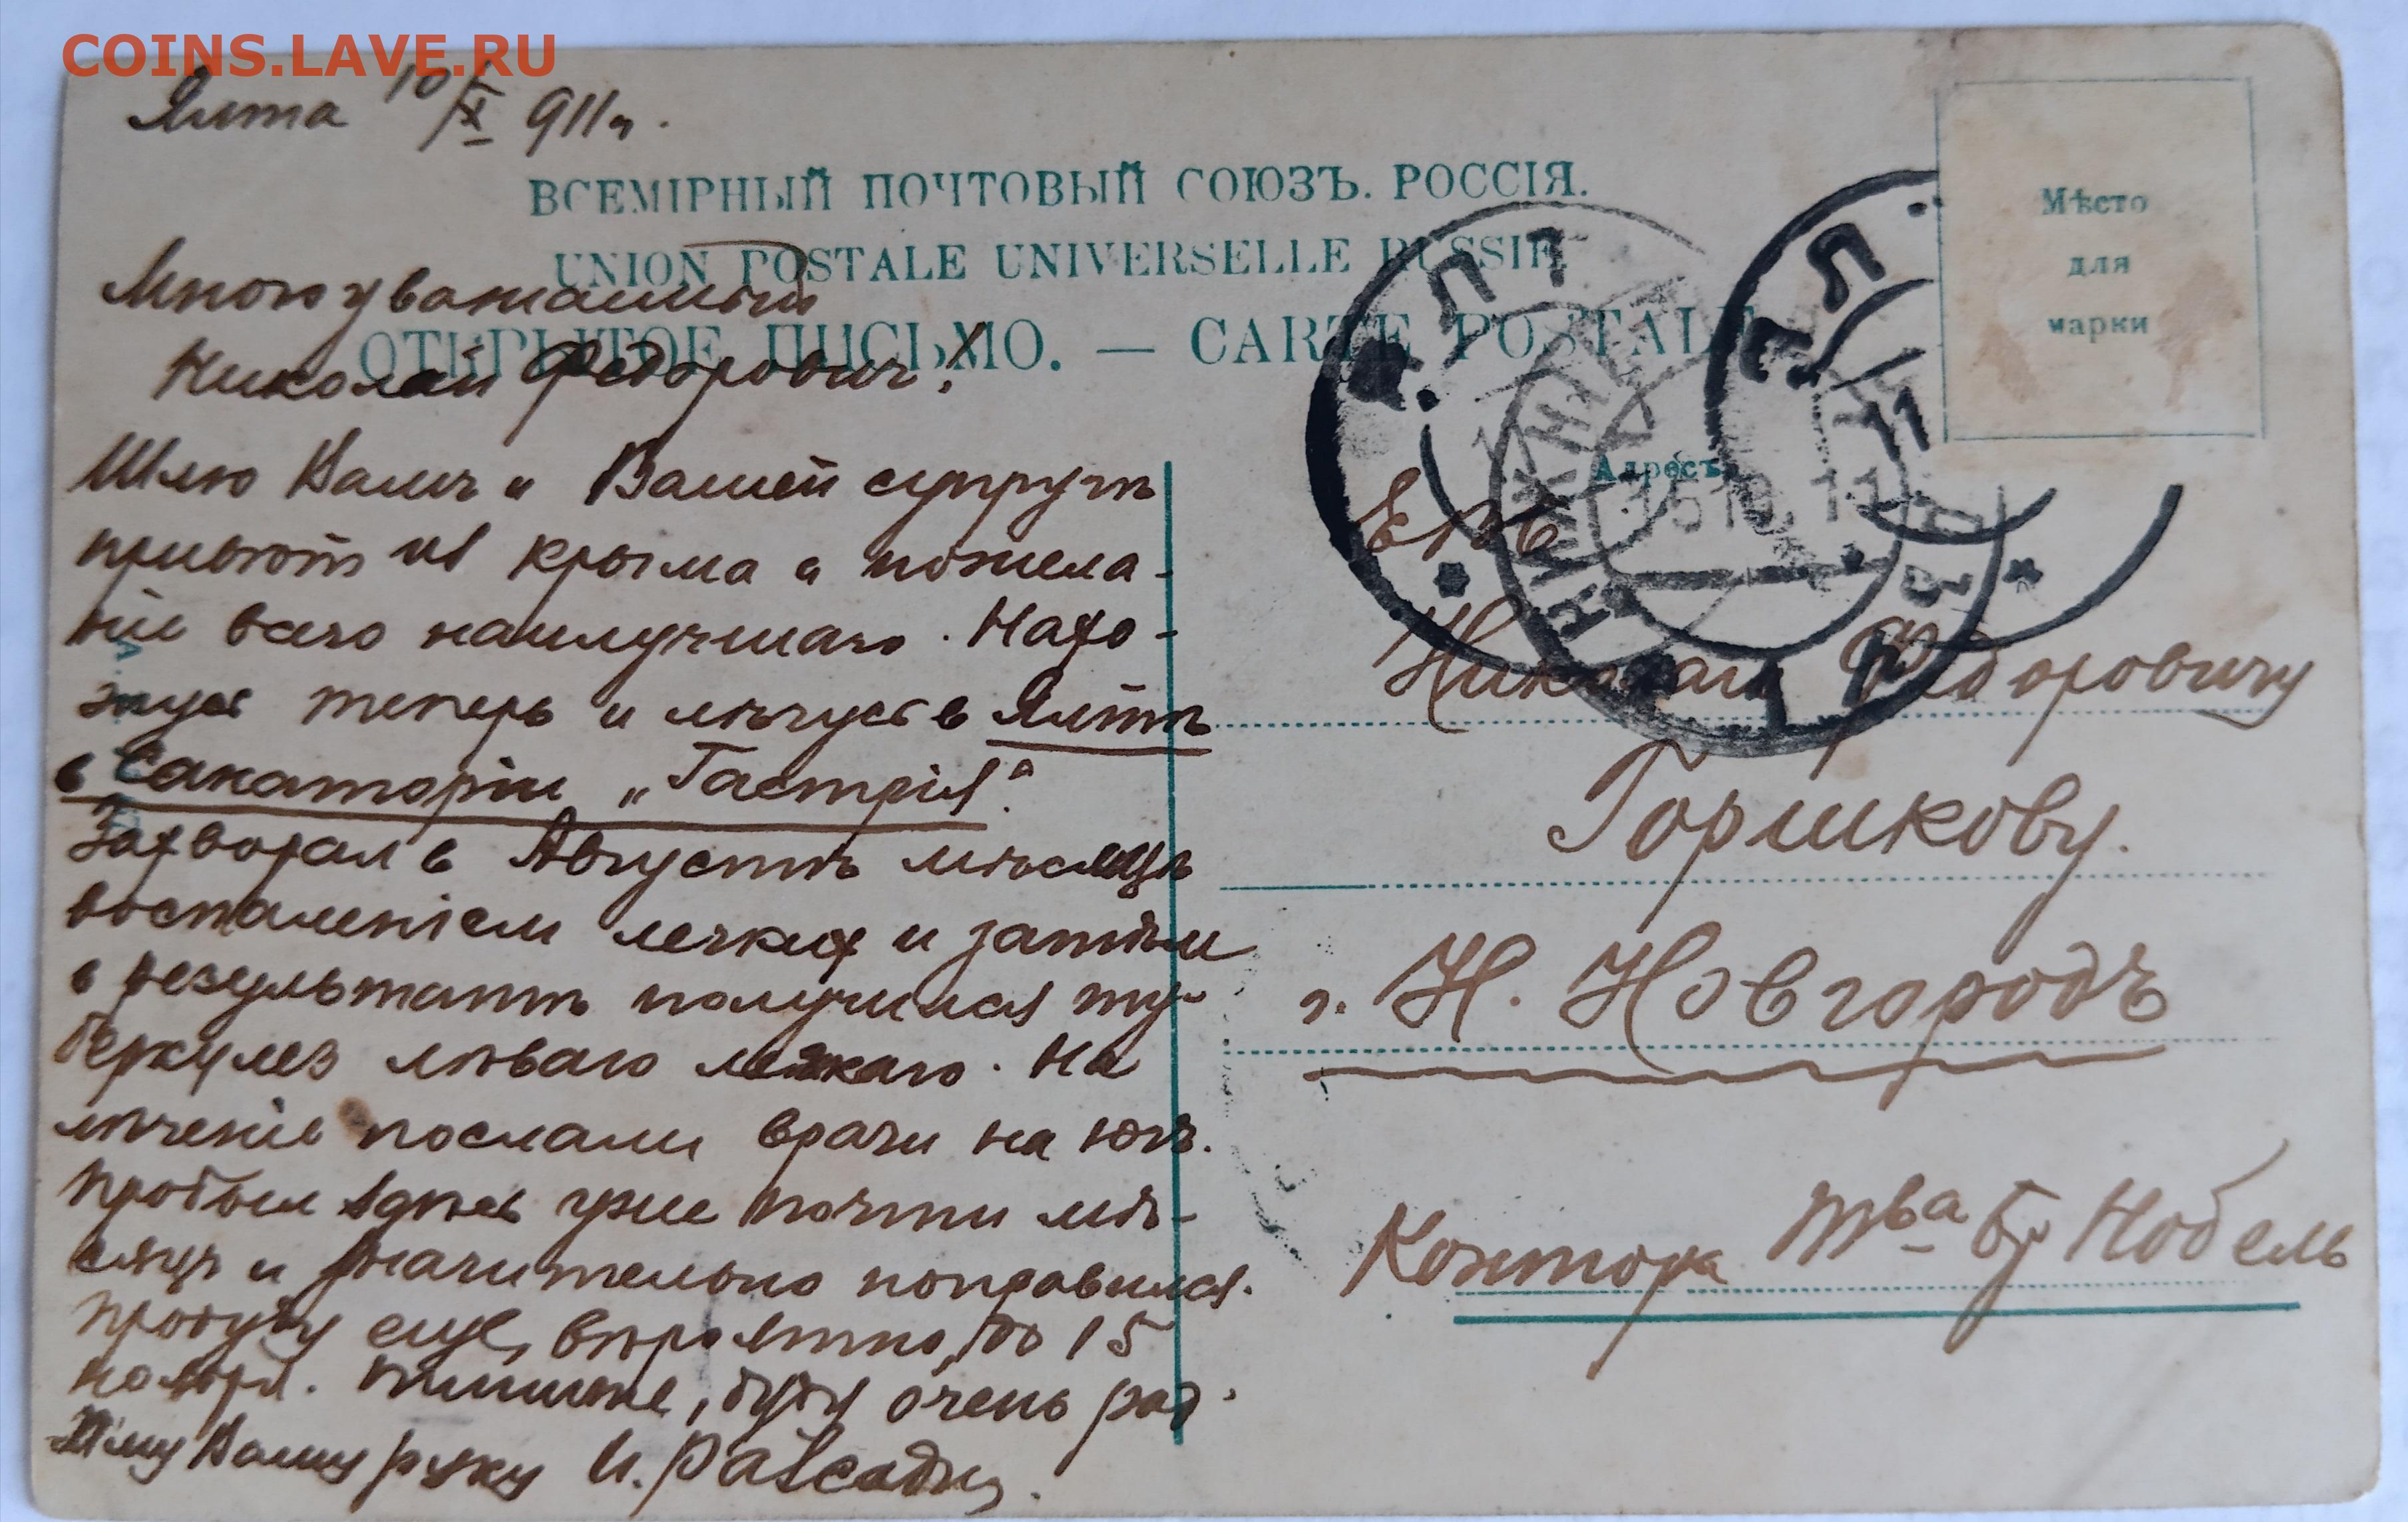 COINS.LAVE.RU
Ялта 10/X 911 г.
ВСЕМІРНЫЙ ПОЧТОВЫЙ СОЮЗЪ. РОССІЯ.
UNION POSTALE UNIVERSELLE RUSSIE
ОТКРЫТОЕ ПИСЬМО. — CARTE POSTALE
Многоуважаемый
Николай Федорович!
Шлю Вамъ и Вашей супругѣ
привѣт из Крыма и пожела-
ніе всего наилучшаго. Нахо-
жусь теперь и лѣчусь в Ялтѣ
в Санаторіи „Гастрія“.
Захворал в Августѣ мѣсяцѣ
воспаленіем легких и затѣм
в результатѣ получился ту-
беркулез лѣваго легкаго. На
лѣченіе послали врачи на югъ.
Пробыл здѣсь уже почти мѣ-
сяцъ и значительно поправился.
Пробуду еще, вѣроятно, до 15
ноября. Пишите, буду очень рад.
Жму Вашу руку И.
Мѣсто
для
марки
Адресъ
ЯЛТА
ЯЛТ
11
НИЖНІЙ
15 10 11
Его
Николаю Федоровичу
Горшкову.
г. Н. Новгородъ
Контора Тва бр Нобель